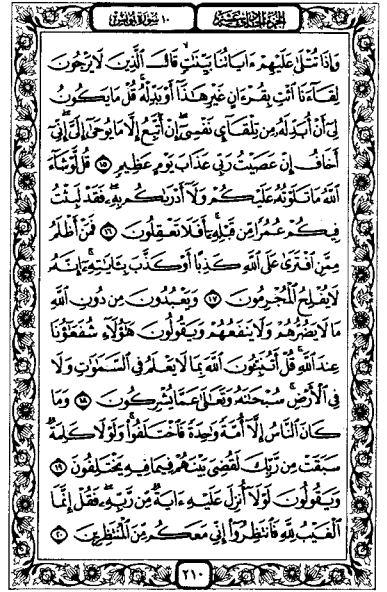 الجزء الحادي عشر
١٠ سورة يونس
وَإِذَا تُتْلَىٰ عَلَيْهِمْ ءَايَاتُنَا بَيِّنَٰتٍ قَالَ الَّذِينَ لَا يَرْجُونَ
لِقَآءَنَا ائْتِ بِقُرْءَانٍ غَيْرِ هَٰذَا أَوْ بَدِّلْهُ قُلْ مَا يَكُونُ
لِىٓ أَنْ أُبَدِّلَهُ مِن تِلْقَآئِ نَفْسِىٓ إِنْ أَتَّبِعُ إِلَّا مَا يُوحَىٰٓ إِلَىَّ إِنِّىٓ
أَخَافُ إِنْ عَصَيْتُ رَبِّى عَذَابَ يَوْمٍ عَظِيمٍ ١٥ قُل لَّوْ شَآءَ
اللَّهُ مَا تَلَوْتُهُ عَلَيْكُمْ وَلَآ أَدْرَىٰكُم بِهِ فَقَدْ لَبِثْتُ
فِيكُمْ عُمُرًا مِّن قَبْلِهِ أَفَلَا تَعْقِلُونَ ١٦ فَمَنْ أَظْلَمُ
مِمَّنِ افْتَرَىٰ عَلَى اللَّهِ كَذِبًا أَوْ كَذَّبَ بِـَٔايَٰتِهِ إِنَّهُ
لَا يُفْلِحُ الْمُجْرِمُونَ ١٧ وَيَعْبُدُونَ مِن دُونِ اللَّهِ
مَا لَا يَضُرُّهُمْ وَلَا يَنفَعُهُمْ وَيَقُولُونَ هَٰٓؤُلَآءِ شُفَعَٰٓؤُنَا
عِندَ اللَّهِ قُلْ أَتُنَبِّـُٔونَ اللَّهَ بِمَا لَا يَعْلَمُ فِى السَّمَٰوَٰتِ وَلَا
فِى الْأَرْضِ سُبْحَٰنَهُ وَتَعَٰلَىٰ عَمَّا يُشْرِكُونَ ١٨ وَمَا
كَانَ النَّاسُ إِلَّآ أُمَّةً وَٰحِدَةً فَاخْتَلَفُوا وَلَوْلَا كَلِمَةٌ
سَبَقَتْ مِن رَّبِّكَ لَقُضِىَ بَيْنَهُمْ فِيمَا فِيهِ يَخْتَلِفُونَ ١٩
وَيَقُولُونَ لَوْلَآ أُنزِلَ عَلَيْهِ ءَايَةٌ مِّن رَّبِّهِ فَقُلْ إِنَّمَا
الْغَيْبُ لِلَّهِ فَانتَظِرُوٓا إِنِّى مَعَكُم مِّنَ الْمُنتَظِرِينَ ٢٠
٢١٠